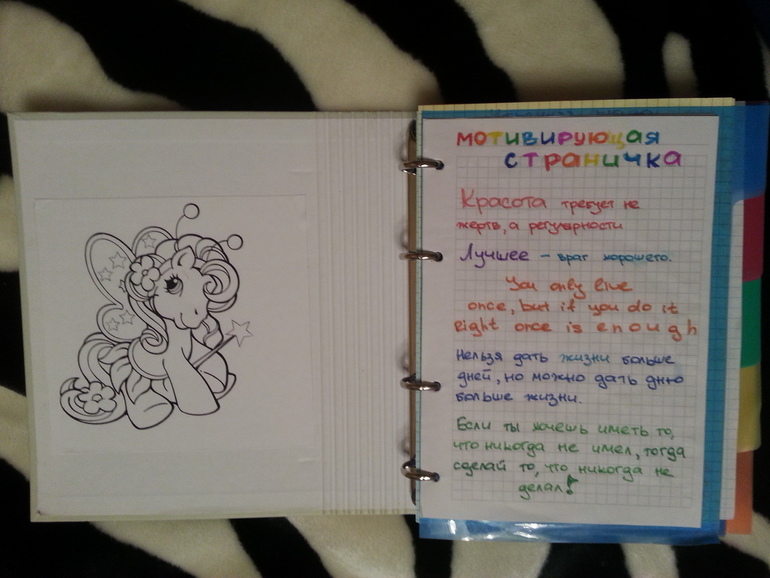 мотивирующая
страничка
Красота требует не
жертв, а регулярности
Лучшее – враг хорошего.
You only live
once, but if you do it
right once is enough
Нельзя дать жизни больше
дней, но можно дать дню
больше жизни.
Если ты хочешь иметь то,
что никогда не имел, тогда
сделай то, что никогда не
делал!